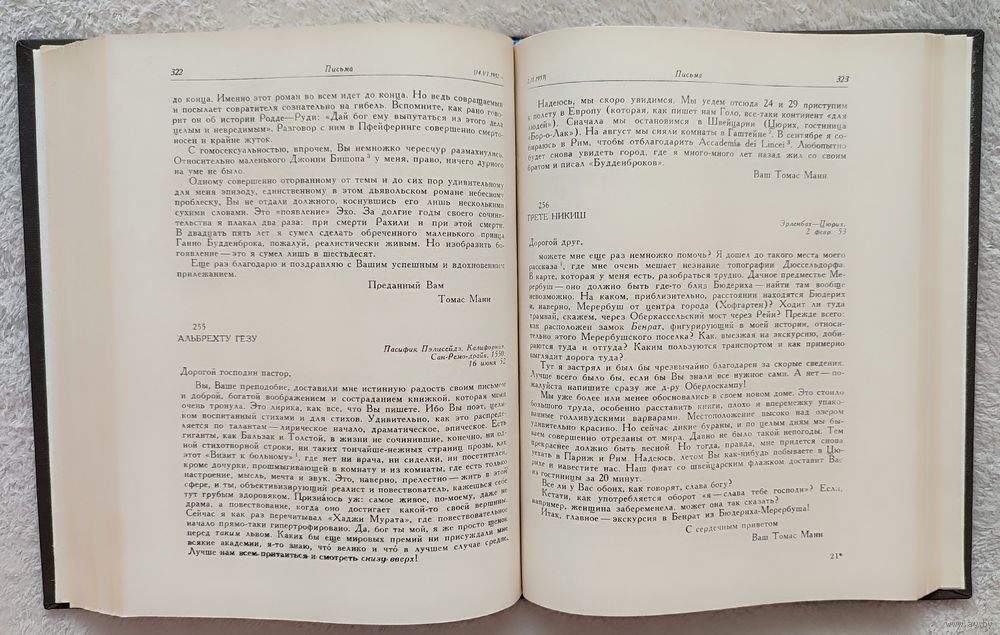 322
Письма
до конца. Именно этот роман во всем идет до конца. Но ведь совращаемый
и посылает совратителя сознательно на гибель. Вспомните, как рано гово-
рит он об истории Родде—Руди: «Дай бог ему выпутаться из этого дела
целым и невредимым». Разговор с ним в Пфейферинге совершенно смерто-
носен и крайне жуток.
С гомосексуальностью, впрочем, Вы немножко чересчур размахнулись.
Относительно маленького Джонни Бишопа³ у меня, право, ничего дурного
на уме не было.
Одному совершенно оторванному от темы и до сих пор удивительному
для меня эпизоду, единственному в этом дьявольском романе небесному
проблеску, Вы не отдали должного, коснувшись его лишь несколькими
сухими словами. Это «появление» Эхо. За долгие годы своего сочини-
тельства я плакал два раза: при смерти Рахили и при этой смерти.
В двадцать пять лет я сумел сделать обреченного маленького принца
Ганно Будденброка, пожалуй, реалистически живым. Но изобразить бо-
гоявление—это я сумел лишь в шестьдесят.
Еще раз благодарю и поздравляю с Вашим успешным и вдохновенным
прилежанием.
Преданный Вам
Томас Манн
255
АЛЬБРЕХТУ ГЕЗУ
Пасифик Пэлисейдз, Калифорния
Сан-Ремо-драйв, 1550
16 июня 52
Дорогой господин пастор,
Вы, Ваше преподобие, доставили мне истинную радость своим письмом
и доброй, богатой воображением и состраданием книжкой, которая меня
очень тронула. Это лирика, как все, что Вы пишете. Ибо Вы поэт, цели-
ком воспитанный стихами и для стихов. Удивительно, как это распреде-
ляется по талантам—лирическое начало, драматическое, эпическое. Есть
гиганты, как Бальзак и Толстой, в жизни не сочинившие, конечно, ни од-
ной стихотворной строки, ни таких тончайше-нежных страниц прозы, как
этот «Визит к больному»¹, где нет ни врача, ни сиделки, ни посетителя,
кроме дочурки, прошмыгивающей в комнату и из комнаты, где есть только
настроение, мысль, мечта и звук. Это, наверно, прелестно—жить в этой
сфере, и ты, объективизирующий реалист и повествователь, кажешься себе
тут грубым здоровяком. Признаюсь уж: самое живое, по-моему, даже не
драма, а повествование, когда оно достигает какой-то своей вершины.
Сейчас я как раз перечитывал «Хаджи Мурата», где повествовательное
начало прямо-таки гипертрофировано. Да, бог ты мой, я же просто щенок
перед таким львом. Каких бы еще мировых премий ни присуждали мне
всякие академии, я-то знаю, что велико и что в лучшем случае средне.
Лучше нам всем притаиться и смотреть снизу вверх!
Письма
323
Надеюсь, мы скоро увидимся. Мы уедем отсюда 24 и 29 приступим
к полету в Европу (которая, как пишет нам Голо, все-таки континент «для
людей»). Сначала мы остановимся в Швейцарии (Цюрих, гостиница
«Бор-о-Лак»). На август мы сняли комнаты в Гаштейне². В сентябре я со-
бираюсь в Рим, чтобы отблагодарить Accademia dei Lincei³. Любопытно
будет снова увидеть город, где я много-много лет назад жил со своим
братом и писал «Будденброков».
Ваш Томас Манн
256
ГРЕТЕ НИКИШ
Эрленбах—Цюрих,
2 февр. 53
Дорогой друг,
можете мне еще раз немножко помочь? Я дошел до такого места моего
рассказа¹, где мне очень мешает незнание топографии Дюссельдорфа.
В карте, которая у меня есть, разобраться трудно. Дачное предместье Ме-
рербуш—оно должно быть где-то близ Бюдериха—найти там вообще
невозможно. На каком, приблизительно, расстоянии находятся Бюдерих
и, наверно, Мерербуш от центра города (Хофгартен)? Ходит ли туда
трамвай, скажем, через Оберкассельский мост через Рейн? Прежде всего:
как расположен замок Бенрат, фигурирующий в моей истории, относи-
тельно этого Мерербушского поселка? Как, выезжая на экскурсию, доби-
раются туда и оттуда? Каким пользуются транспортом и как примерно
выглядит дорога туда?
Тут я застрял и был бы чрезвычайно благодарен за скорые сведения.
Лучше всего было бы, если бы Вы знали все нужное сами. А нет—по-
жалуйста напишите сразу же д-ру Оберлоскампу!
Мы уже более или менее обосновались в своем новом доме. Это стоило
большого труда, особенно расставить книги, плохо и вперемежку упако-
ванные голливудскими варварами. Местоположение высоко над озером
удивительно красиво. Но сейчас дикие бураны, и по целым дням мы бы-
ваем совершенно отрезаны от мира. Давно не было такой непогоды. Тем
прекраснее должно быть весной Но тогда, правда, мне придется снова
уехать в Париж и Рим Надеюсь, летом Вы как-нибудь побываете в Цю-
рихе и навестите нас. Наш фиат со швейцарским флажком доставит Вас
из гостиницы за 20 минут.
Все ли у Вас обоих, как говорят, слава богу?
Кстати, как употребляется оборот «я—слава тебе господи»? Если,
например, женщина забеременела, может она так сказать?
Итак, главное—экскурсия в Бенрат из Бюдериха-Мерербуша!
С сердечным приветом
Ваш Томас Манн
21*
www.ay.by